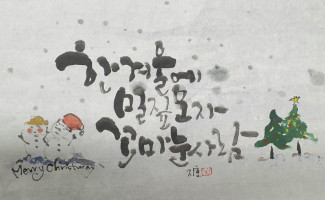 한겨울에
밀짚모자
꼬마눈사람
Merry Christmas